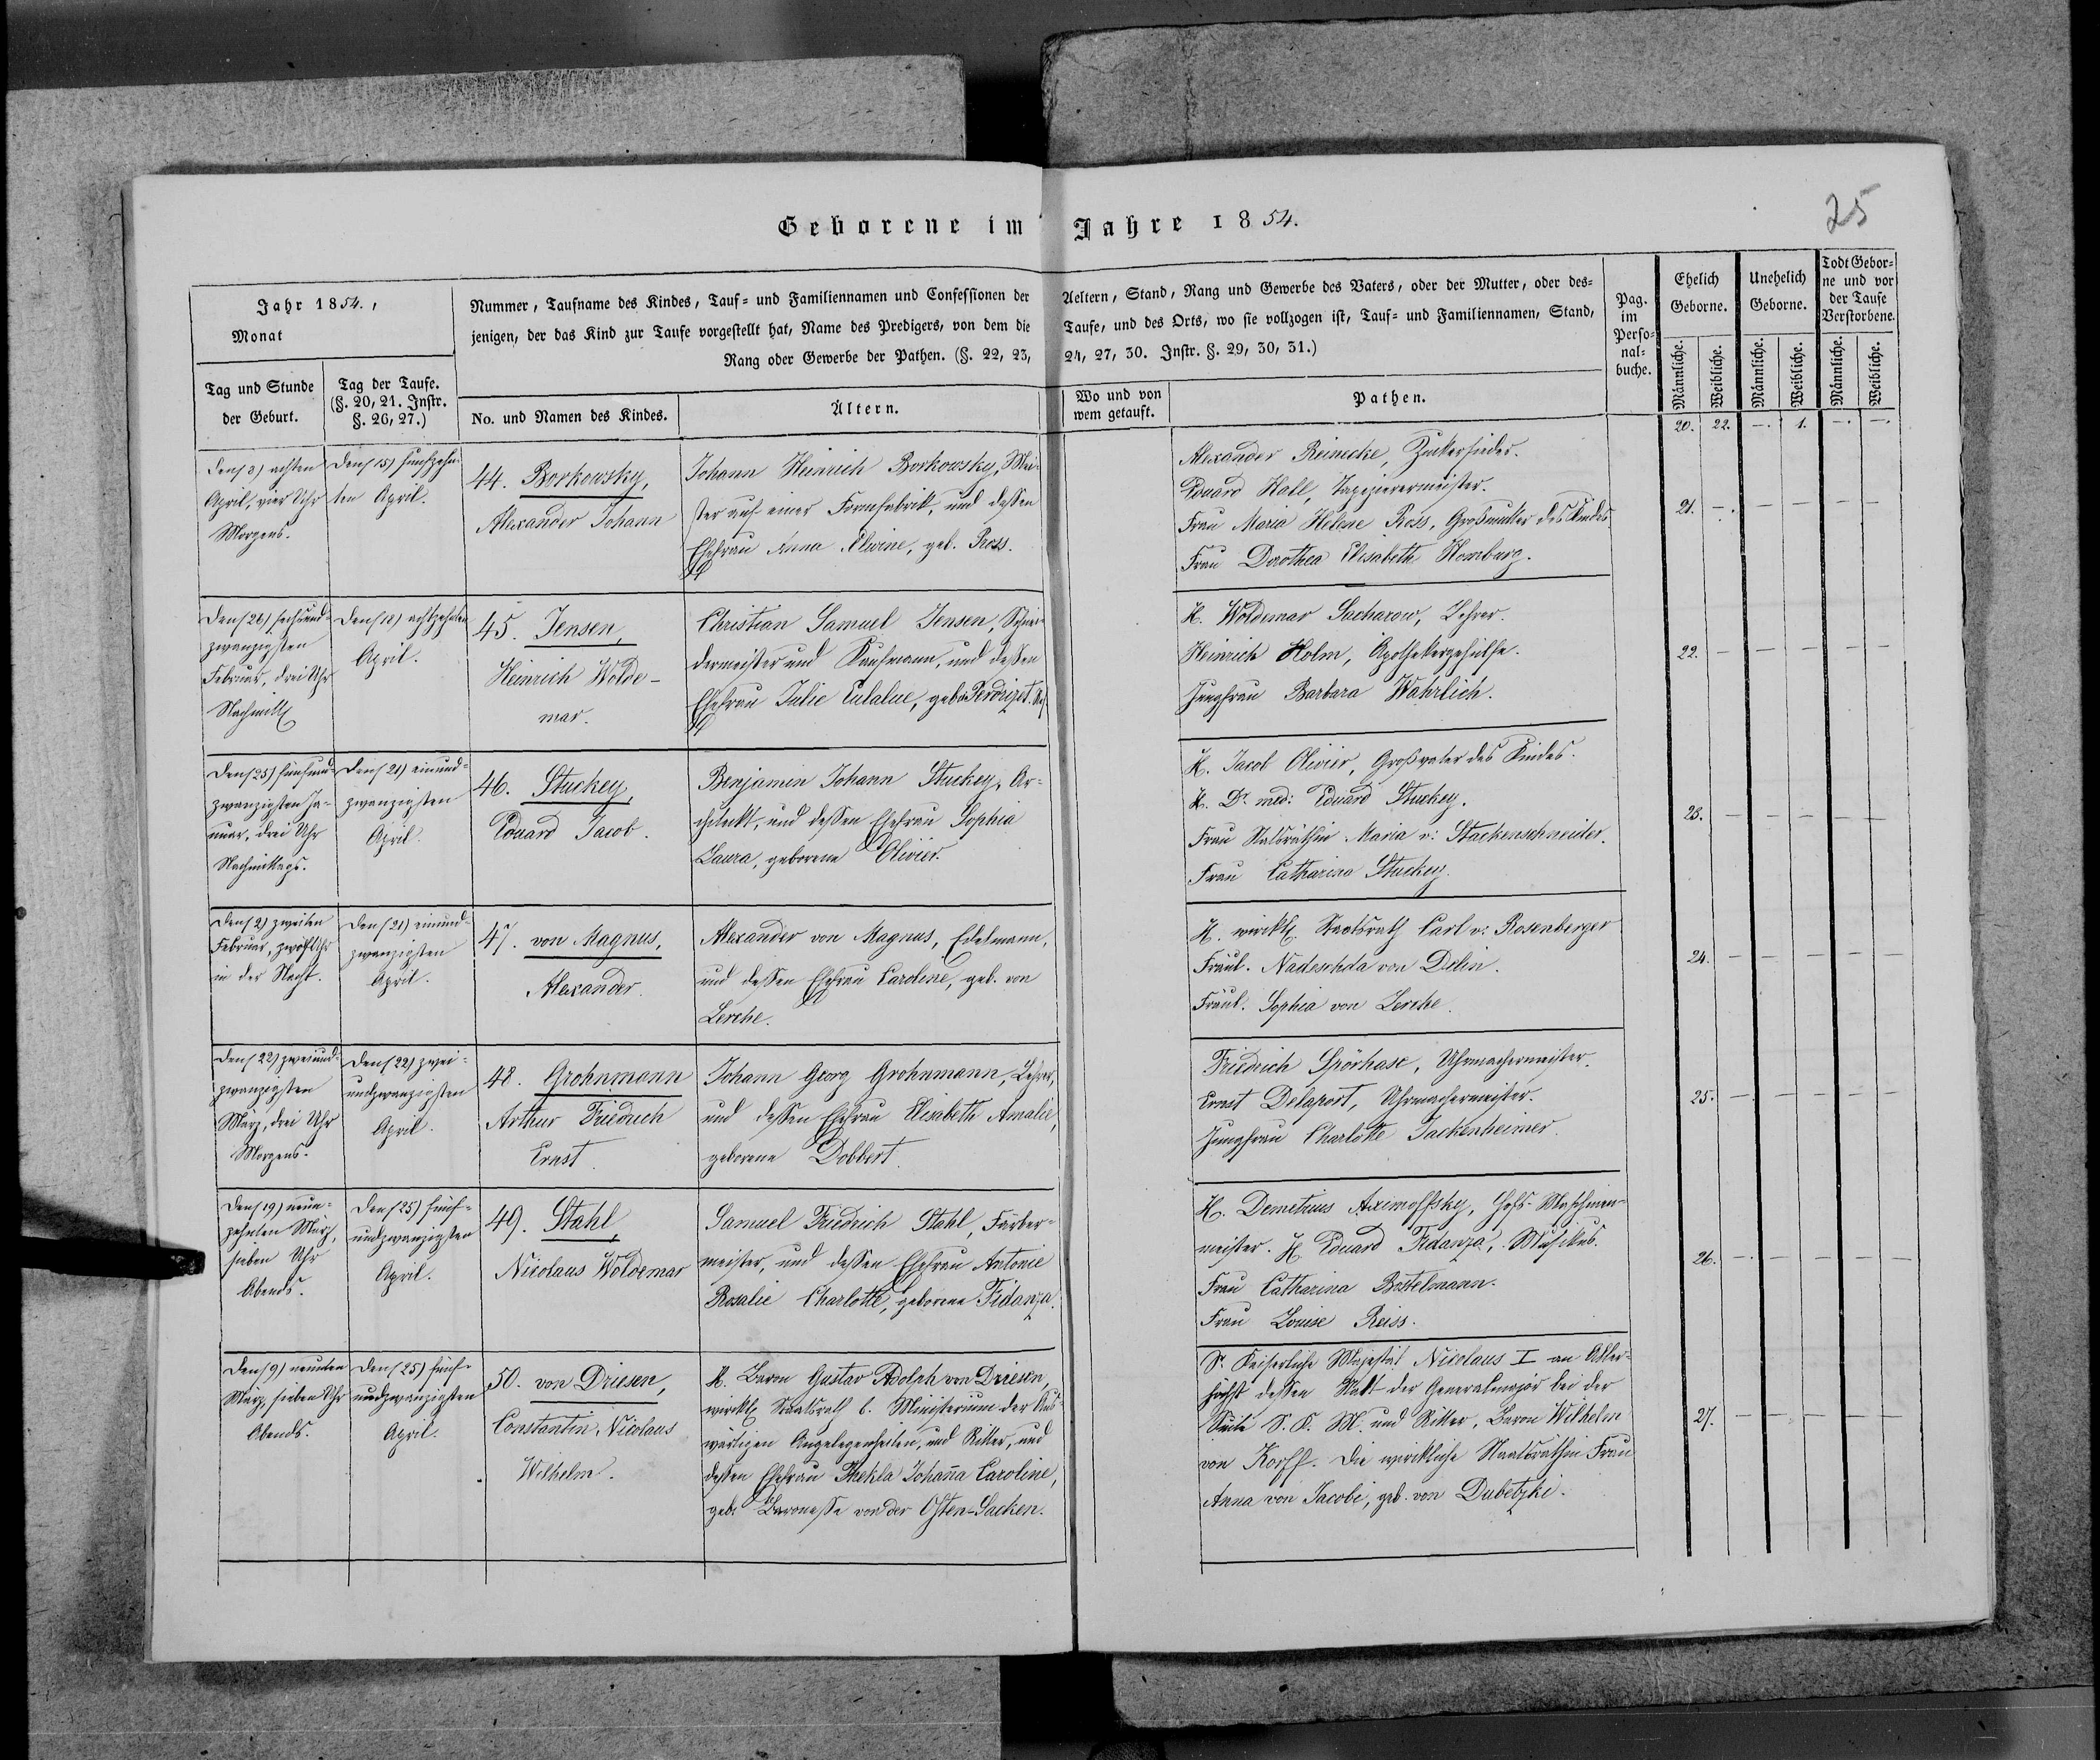 25
Geborene im Jahre 1854.
Jahr 1854.,
Monat
Tag und Stunde
der Geburt.
Tag der Taufe.
(§. 20, 21. Instr.
§. 26, 27.)
Nummer, Taufname des Kindes, Tauf- und Familiennamen und Confessionen der Aeltern, Stand, Rang und Gewerbe des Vaters, oder der Mutter, oder des-
jenigen, der das Kind zur Taufe vorgestellt hat, Name des Predigers, von dem die Taufe, und des Orts, wo sie vollzogen ist, Tauf- und Familiennamen, Stand,
Rang oder Gewerbe der Pathen. (§. 22, 23, 24, 27, 30. Instr. §. 29, 30, 31.)
No. und Namen des Kindes.
Ältern.
Wo und von
wem getauft.
Pathen.
Pag.
im
Perso-
nal-
buche.
Ehelich
Geborne.
Unehelich
Geborne.
Todt Gebor-
ne und vor
der Taufe
Verstorbene.
Männliche.
Weibliche.
Männliche.
Weibliche.
Männliche.
Weibliche.
20. 22. —. 1. —. —.
Den (8) achten
April, vier Uhr
Morgens.
Den (15) fünfzehn-
ten April.
44. Borkowsky,
Alexander Johann
Johann Heinrich Borkowsky, Mei-
ster auf einer Formfabrik, und dessen
Ehefrau Anna Alwine, geb. Ross.
Alexander Reinecke, Zuckersieder.
Eduard Hall, Tapezierermeister.
Frau Maria Helene Ross, Großmutter des Kindes
Frau Dorothea Elisabeth Homburg.
21. — — — — —
Den (26) sechsund-
zwanzigsten
Februar, drei Uhr
Nachmitt
Den (18) achtzehnten
April.
45. Jensen,
Heinrich Wolde-
mar.
Christian Samuel Jensen, Schnei-
dermeister und Kaufmann, und dessen
Ehefrau Julie Eulalue, geb. Perdrizet.
H. Woldemar Sacharow, Lehrer.
Heinrich Holm, Apothekergehülfe.
Jungfrau Barbara Wahrlich.
22. — — — — —
Den (25) fünfund-
zwanzigsten Ja-
nuar, drei Uhr
Nachmittags.
Den (21) einund-
zwanzigsten
April.
46. Stuckey,
Eduard Jacob.
Benjamin Johann Stuckey, Ar-
chitekt, und dessen Ehefrau Sophia
Laura, geborene Olivier.
H. Jacob Olivier, Großvater des Kindes.
H. Dr. med: Eduard Stuckey.
Frau Statsräthin Maria v: Stackenschneider.
Frau Catharina Stuckey.
23. — — — — —
Den (2) zweiten
Februar, zwölf Uhr
in der Nacht.
Den (21) einund-
zwanzigsten
April.
47. von Magnus,
Alexander.
Alexander von Magnus, Edelmann,
und dessen Ehefrau Caroline, geb. von
Lerche.
H. wirkl. Staatsrath Carl v: Rosenberger
Fräul. Nadeschda von Delin.
Fräul. Sophia von Lerche.
24. — — — — —
Den (22) zweiund-
zwanzigsten
März, drei Uhr
Morgens.
Den (22) zwei-
undzwanzigsten
April.
48. Grohnmann
Arthur Friedrich
Ernst.
Johann Georg Grohnmann, Lehrer,
und dessen Ehefrau Elisabeth Amalie,
geborene Dobbert.
Friedrich Spörhase, Uhrmachermeister.
Ernst Delaport, Uhrmachermeister.
Jungfrau Charlotte Jackenheimer.
25. — — — — —
Den (19) neun-
zehnten März,
sieben Uhr
Abends.
Den (25) fünf-
undzwanzigsten
April.
49. Stahl,
Nicolaus Woldemar
Samuel Friedrich Stahl, Färber-
meister, und dessen Ehefrau Antonie
Rosalie Charlotte, geborene Fidanza.
H. Demetrius Aximoffsky, Hofs-Maschinen-
meister. H Eduard Fidanza, Musikus.
Frau Catharina Bostelmann.
Frau Louise Reiss.
26. — — — — —
Den (9) neunten
März, sieben Uhr
Abends.
Den (25) fünf-
undzwanzigsten
April.
50. von Driesen,
Constantin, Nicolaus
Wilhelm.
H. Baron Gustav Adolph von Driesen,
wirkl Staatsrath b. Ministerium der Aus-
wärtigen Angelegenheiten, und Ritter, und
dessen Ehefrau Thekla Johanna Caroline,
geb. Baronesse von der Osten-Sacken.
Sr. Kaiserliche Majestät Nicolaus I an Aller-
höchst dessen Statt der Generalmajor bei der
Suite S. K. M. und Ritter, Baron Wilhelm
von Korff. Die wirkliche Staatsräthin Frau
Anna von Jacobi, geb. von Dubetzki.
27. — — — — —